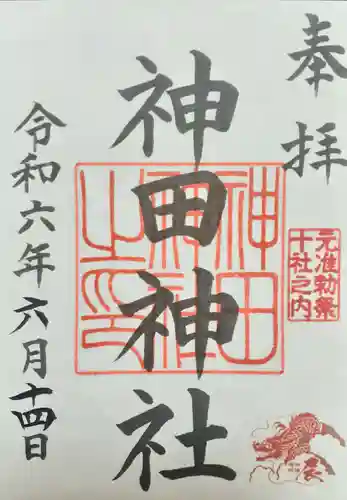 奉拝
元准勅祭
十社之内
神田神社
神田
神社
之印
令和六年六月十四日